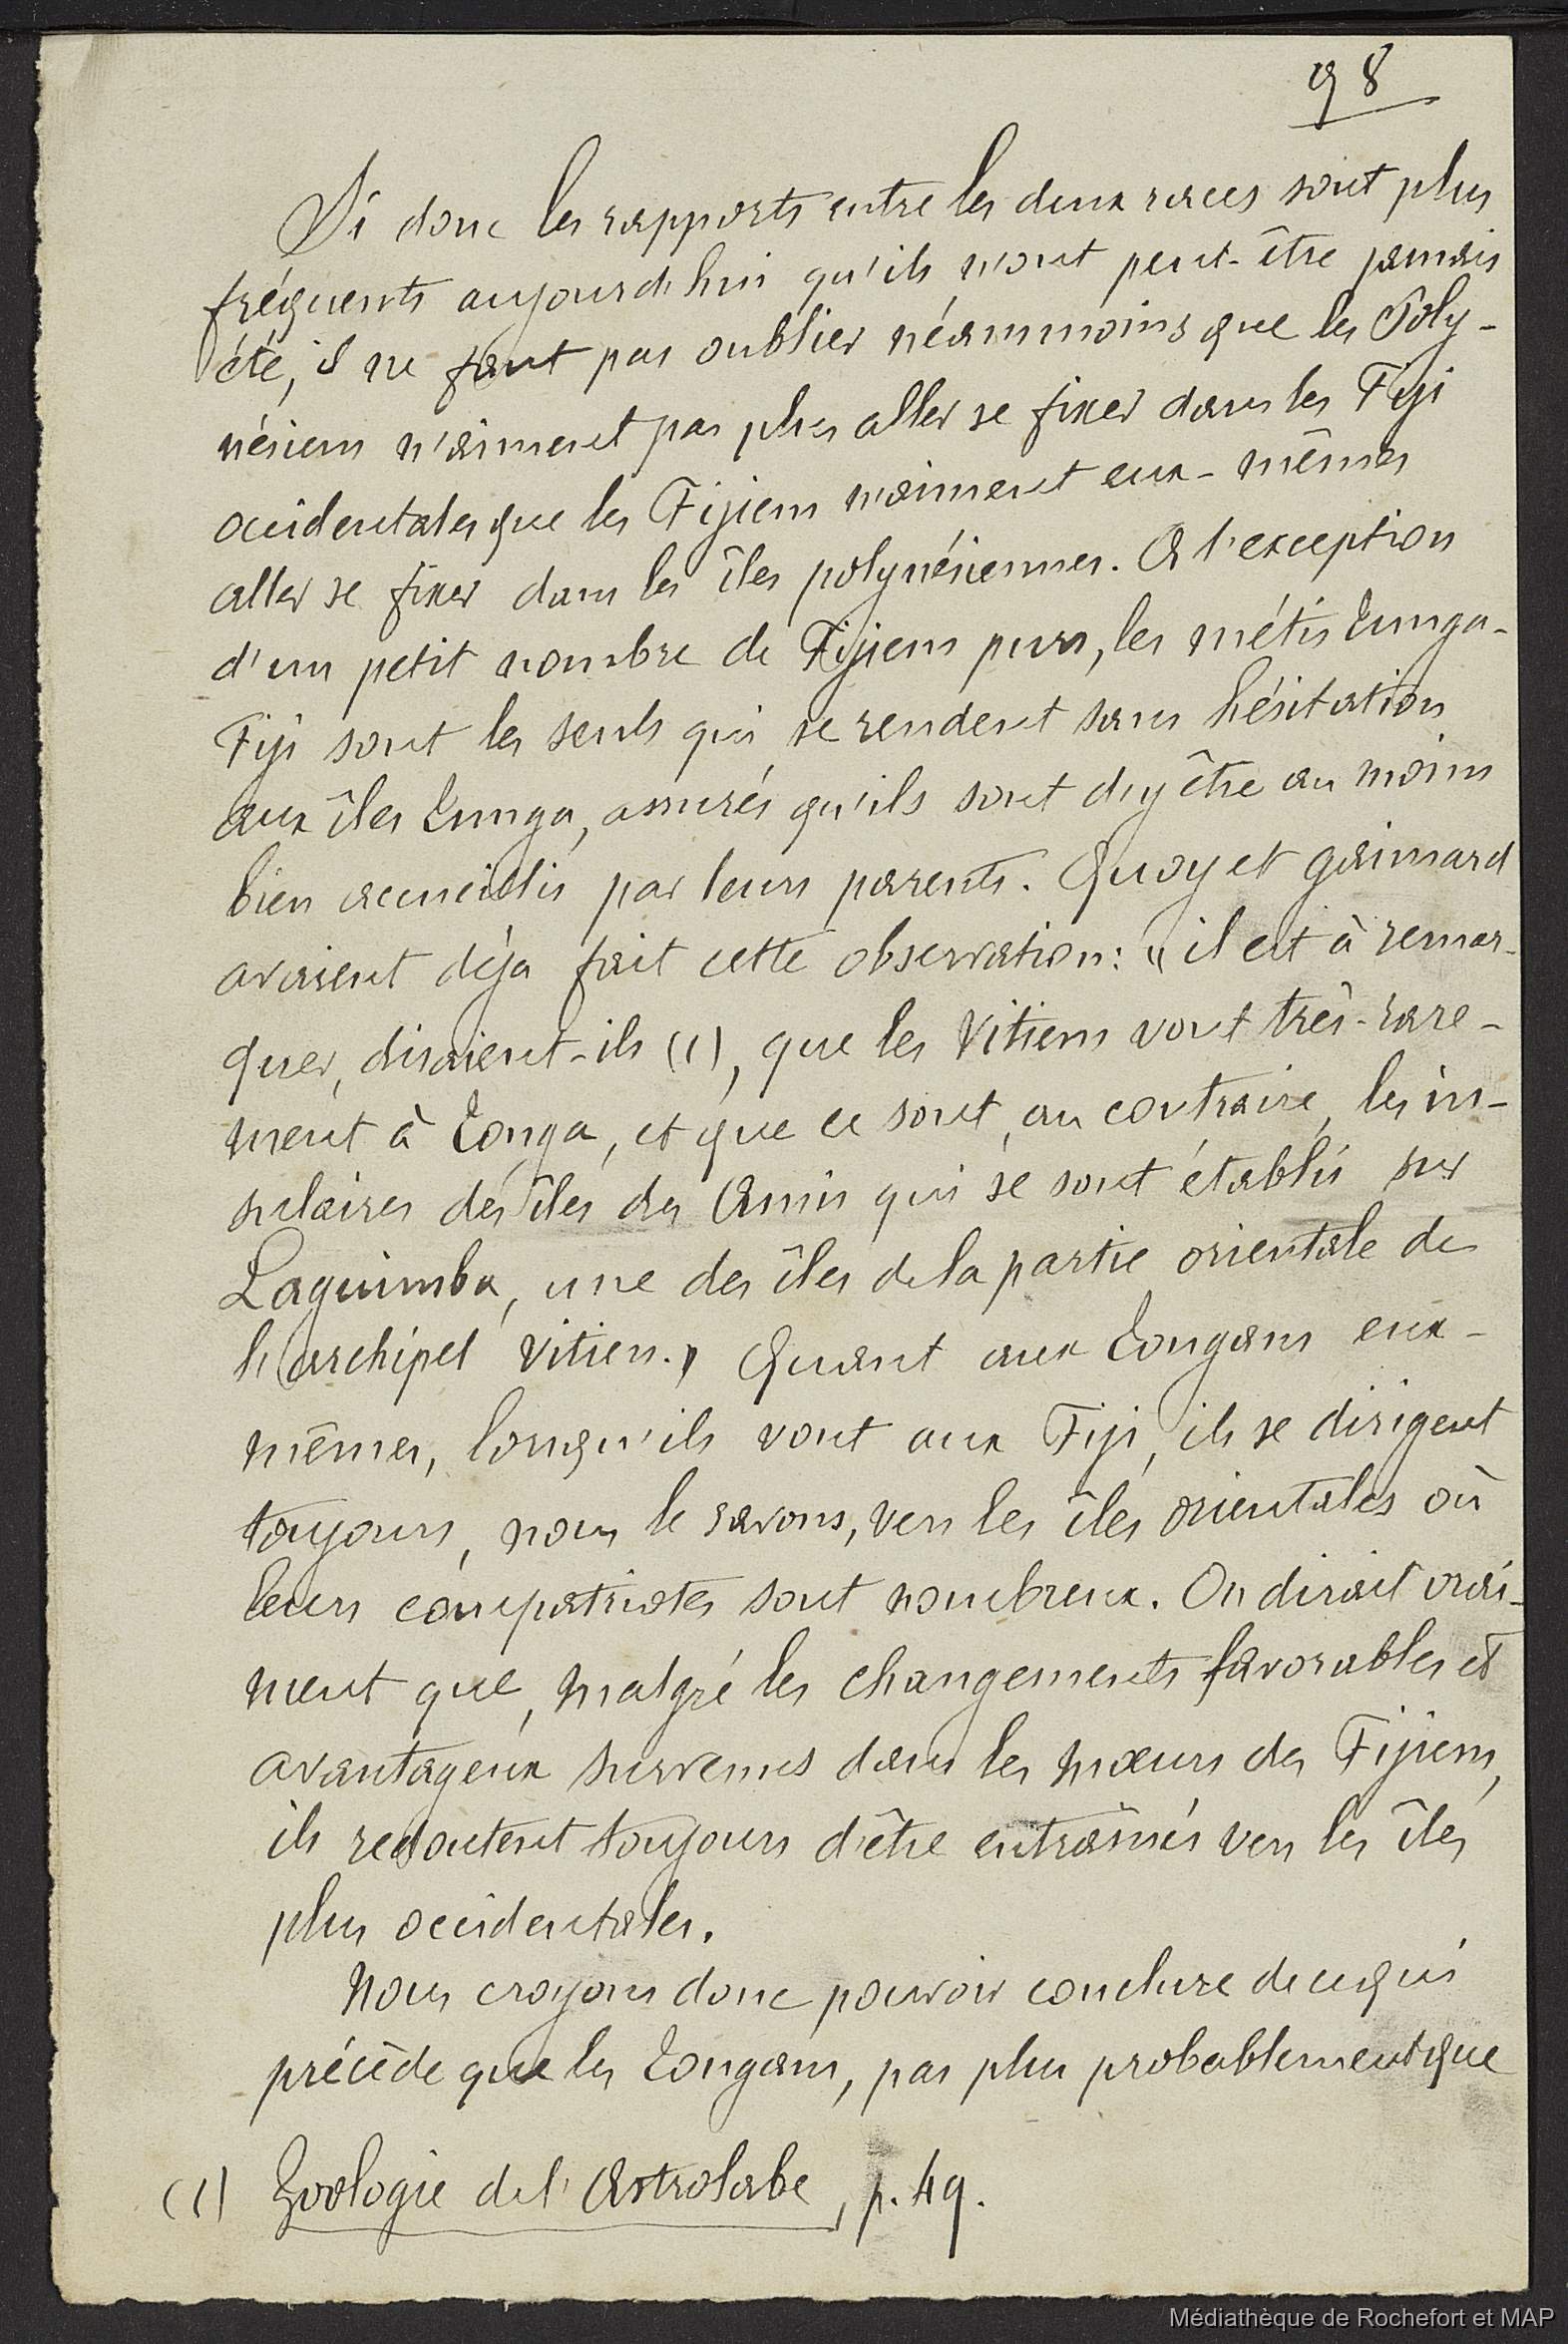 98
Si donc les rapports entre les deux races sont plus
fréquents aujourd'hui qu'ils n'ont peut-être jamais
été, il ne faut pas oublier néammoins que les Poly-
nésiens n'aiment pas plus aller se fixer dans les Fiji
occidentales que les Fijiens n'aiment eux-mêmes
aller se fixer dans les îles polynésiennes. A l'exception
d'un petit nombre de Fijiens purs, les métis Tunga-
Fiji sont les seuls qui se rendent sans hésitation
aux îles Tunga, assurés qu'ils sont d'y être au moins
bien accueillis par leurs parents. Quoy et Gaimard
avaient déja fait cette observation: "il est à remar-
quer, disaient-ils (1), que les Vitiens vont très-rare-
ment à Tonga, et que ce sont, au contraire, les in-
sulaires des îles des Amis qui se sont établis sur
Laguimba, une des îles de la partie orientale de
l'archipel Vitien." Quant aux Tongans eux-
mêmes, lorsqu'ils vont aux Fiji, ils se dirigent
toujours, nous le savons, vers les îles orientales où
leurs compatriotes sont nombreux. On dirait vrai-
ment que, malgré les changements favorables et
avantageux survenus dans les mœurs des Fijiens,
ils redoutent toujours d'être entraînés vers les îles
plus occidentales.
Nous croyons donc pouvoir conclure de ce qui
précède que les Tongans, pas plus probablement que
(1) Zoologie de l'Astrolabe, p. 49.
Médiathèque de Rochefort et MAP